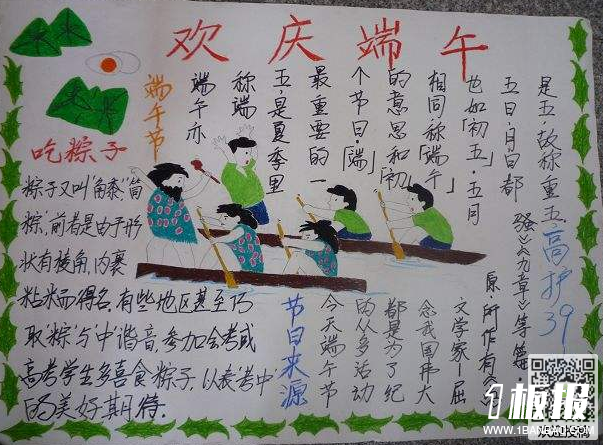 欢庆端午
端午节
端午亦
称端
五,是夏季里
最重要的一
个节日,“端”
的意思和“初”
相同称“端午”
也如“初五”,五月
五日,月日都
是五,故称重五
高护39
吃粽子
粽子又叫“角黍”,“筒
粽”,前者是由于形
状有棱角,内裹
粘米而得名,有些地区甚至巧
取“粽”与“中”谐音,参加会考或
高考学生多喜食粽子,以表“考中”
的美好期待.
节日来源
今天端午节
的从多活动
都是为了纪
念我国伟大
文学家-屈
原,所作有
骚》《九章》等
1板报
WWW.1BANBAO.COM